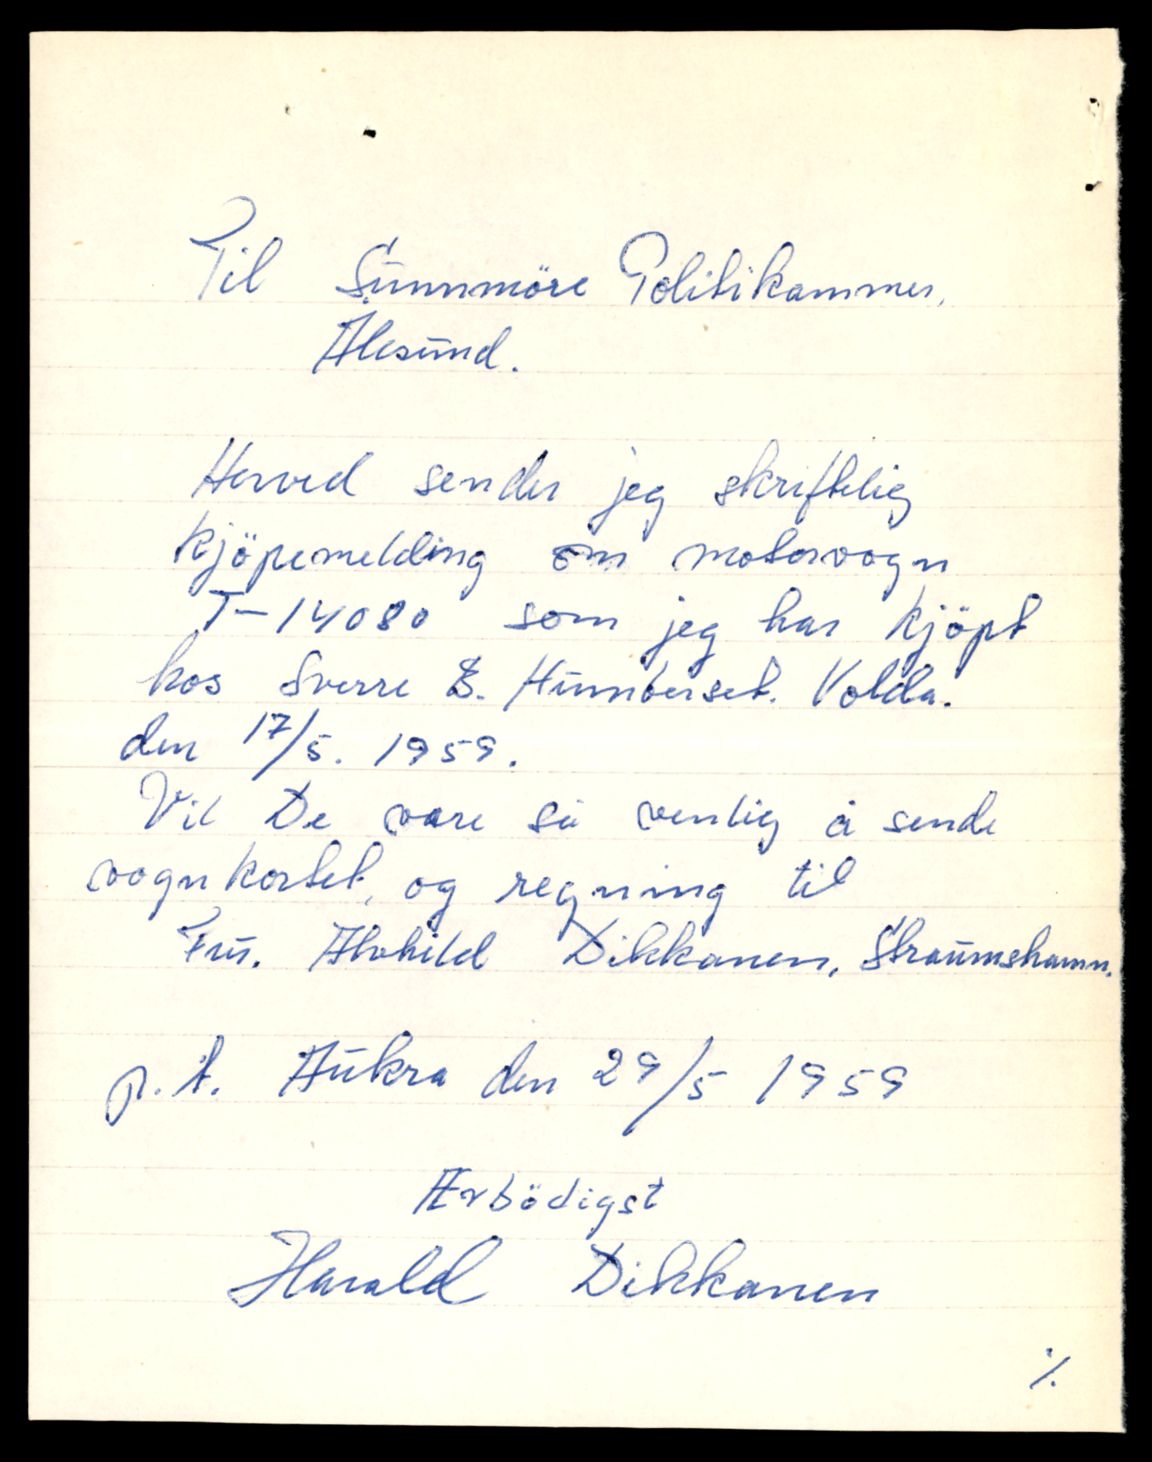 Til Sunnmöre Politikammer,
Ålesund.
Herved sender jeg skriftlig
kjöpemelding om motorvogn
T-14080 som jeg har kjöpt
hos Sverre B. Humberset. Volda.
den 17/5. 1959.
Vil De være så venlig å sende
vognkortet, og regning til
Fru. Alvhild Dikkanen, Straumshamn.
p.t. Aukra den 29/5 1959
Ærbödigst
Harald Dikkanen
%.